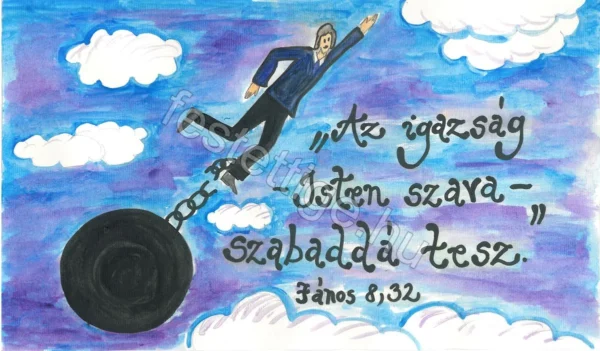 „Az igazság
– Isten szava –
szabaddá tesz.”
János 8,32
festettige.hu